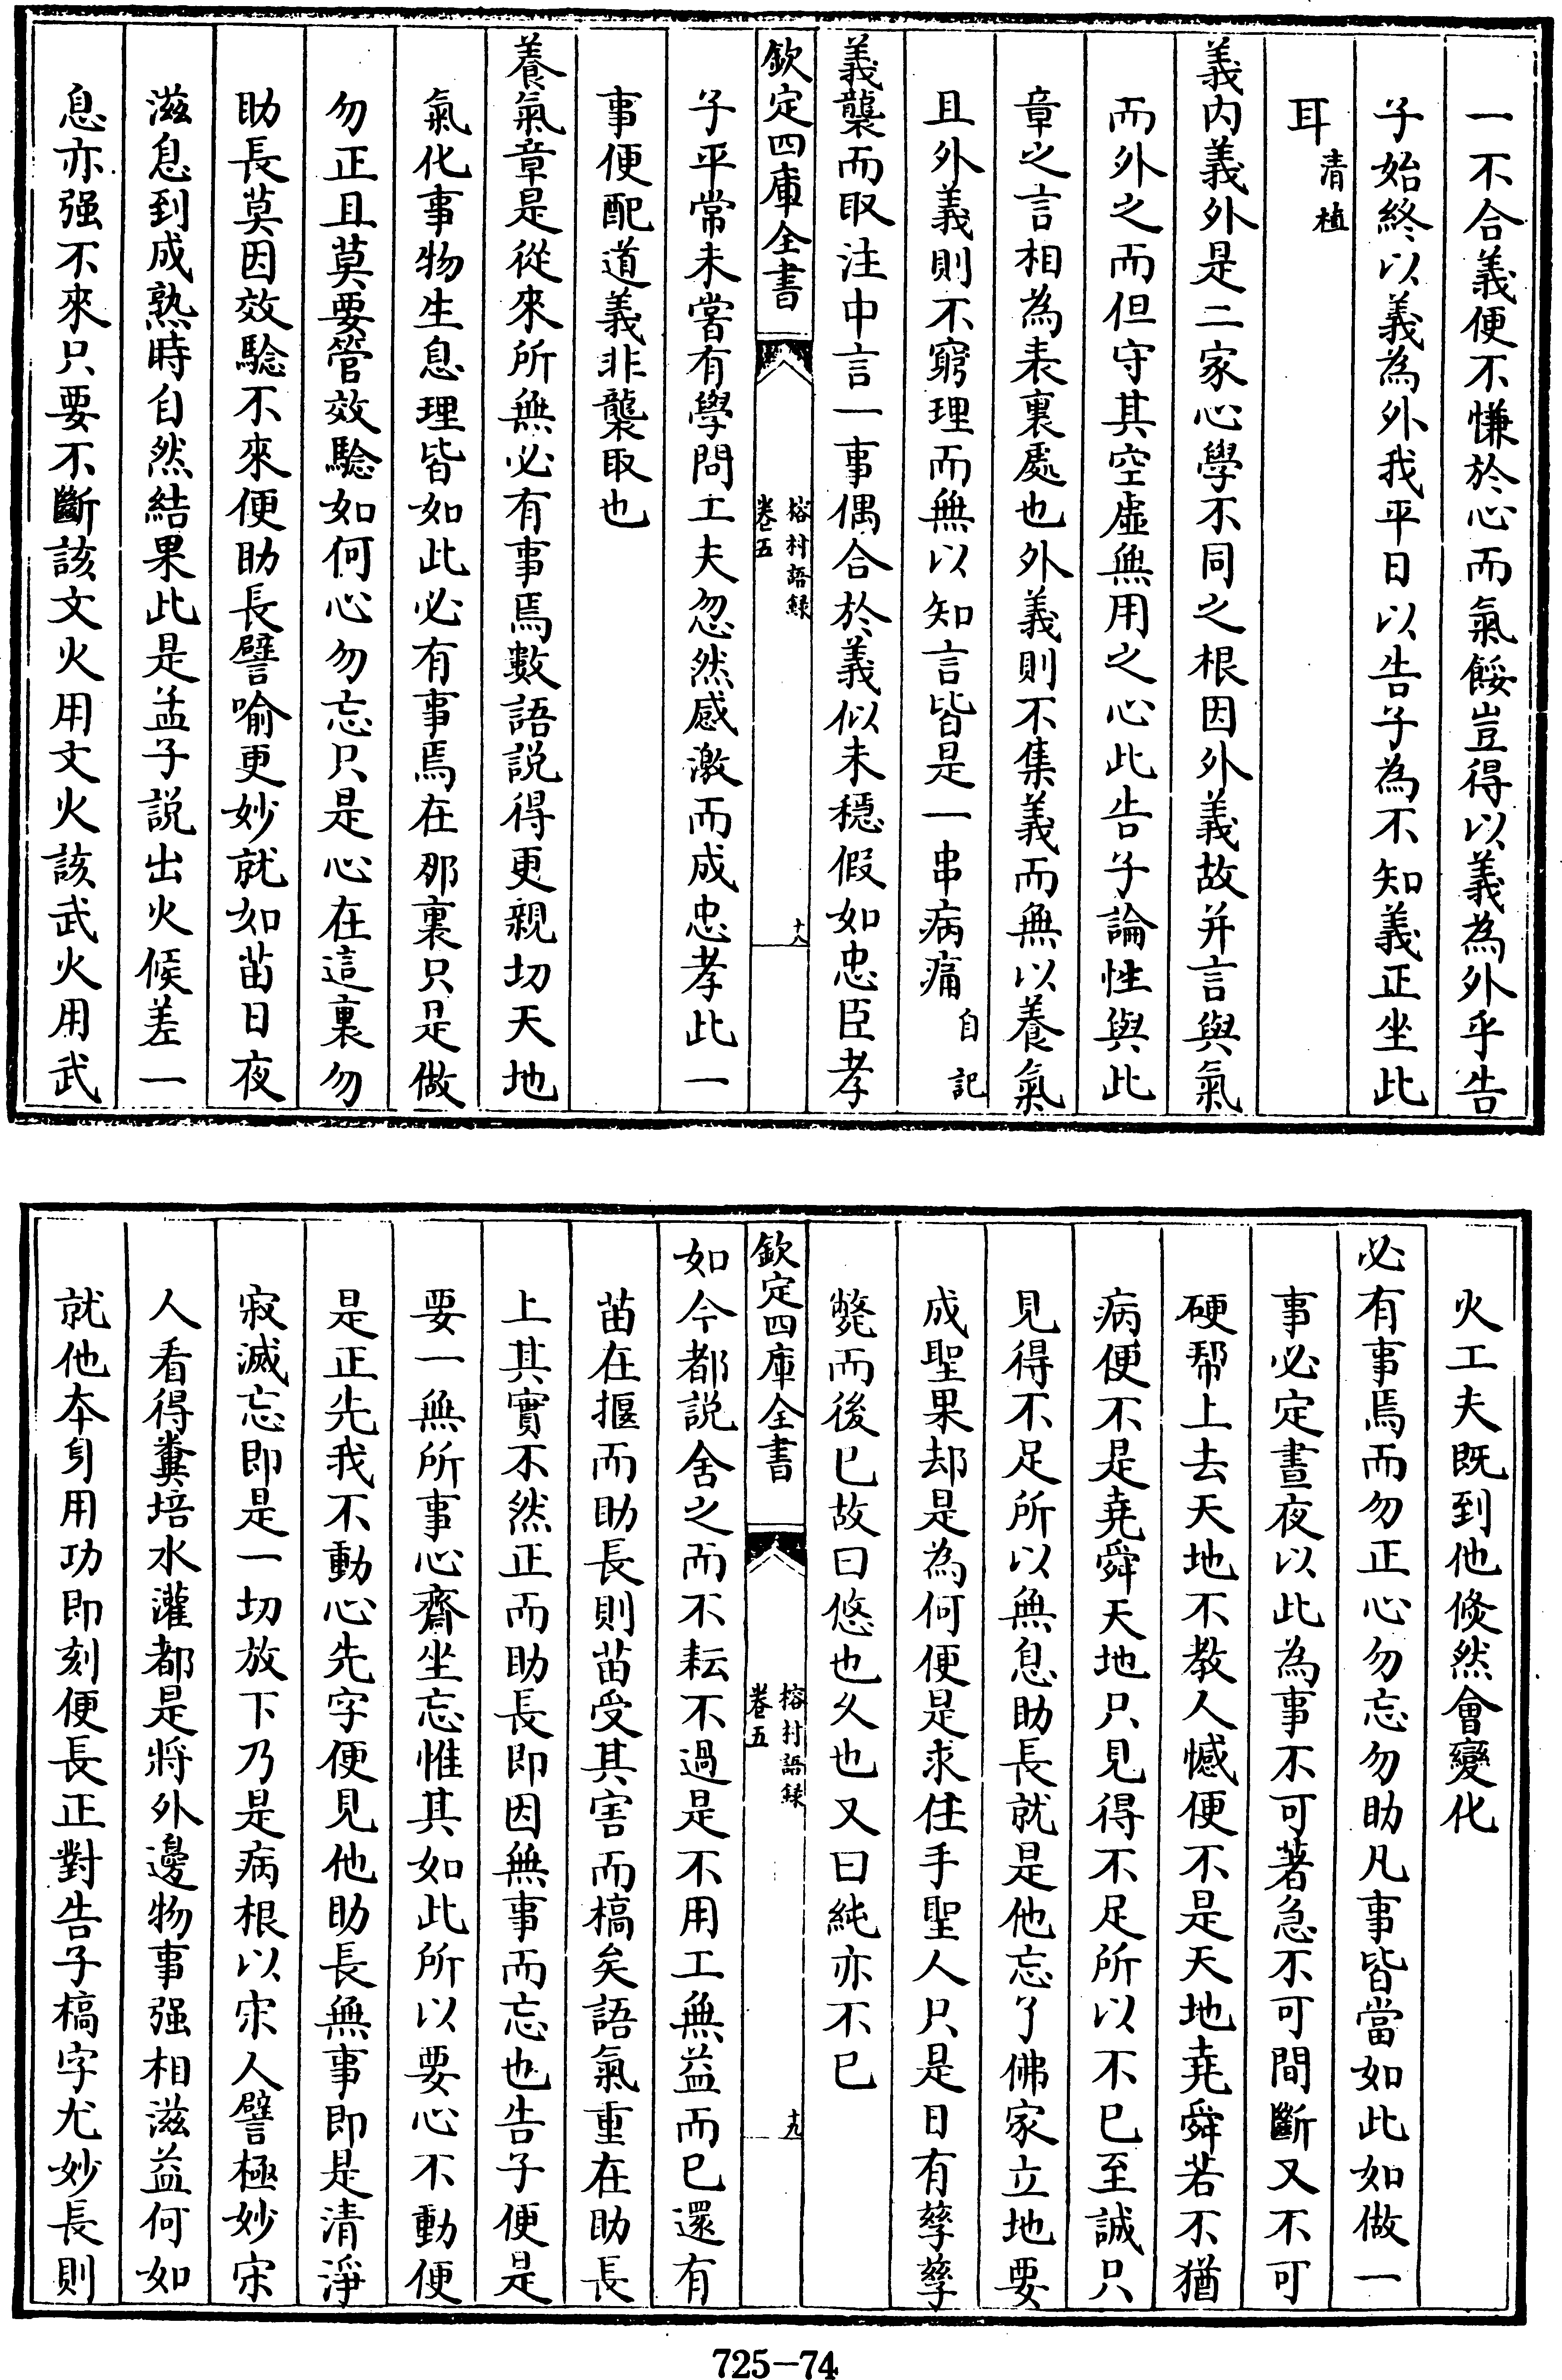 一不合義便不慊於心而氣餒豈得以義為外乎告
子始終以義為外我平日以告子為不知義正坐此
耳清植
義内義外是二家心學不同之根因外義故并言與氣
而外之而但守其空虛無用之心此告子論性與此
章之言相為表裏處也外義則不集義而無以養氣
且外義則不窮理而無以知言皆是一串病痛自記
義襲而取注中言一事偶合於義似未穩假如忠臣孝
欽定四庫全書
榕村語録
卷五
十八
子平常未嘗有學問工夫忽然感激而成忠孝此一
事便配道義非襲取也
養氣章是從來所無必有事焉數語説得更親切天地
氣化事物生息理皆如此必有事焉在那裏只是做
勿正且莫要管效驗如何心勿忘只是心在這裏勿
助長莫因效驗不來便助長譬喻更妙就如苗日夜
滋息到成熟時自然結果此是孟子説出火候差一
息亦强不來只要不斷該文火用文火該武火用武
火工夫既到他倐然會變化
必有事焉而勿正心勿忘勿助凡事皆當如此如做一
事必定晝夜以此為事不可著急不可間斷又不可
硬帮上去天地不教人憾便不是天地堯舜若不猶
病便不是堯舜天地只見得不足所以不已至誠只
見得不足所以無息助長就是他忘了佛家立地要
成聖果却是為何便是求住手聖人只是日有孳孳
斃而後已故曰悠也久也又曰純亦不已
欽定四庫全書
榕村語録
卷五
十九
如今都説舍之而不耘不過是不用工無益而已還有
苗在揠而助長則苗受其害而槁矣語氣重在助長
上其實不然正而助長即因無事而忘也告子便是
要一無所事心齋坐忘惟其如此所以要心不動便
是正先我不動心先字便見他助長無事即是清淨
寂滅忘即是一切放下乃是病根以宋人譬極妙宋
人看得糞培水灌都是將外邊物事强相滋益何如
就他本身用功即刻便長正對告子槁字尤妙長則
725-74